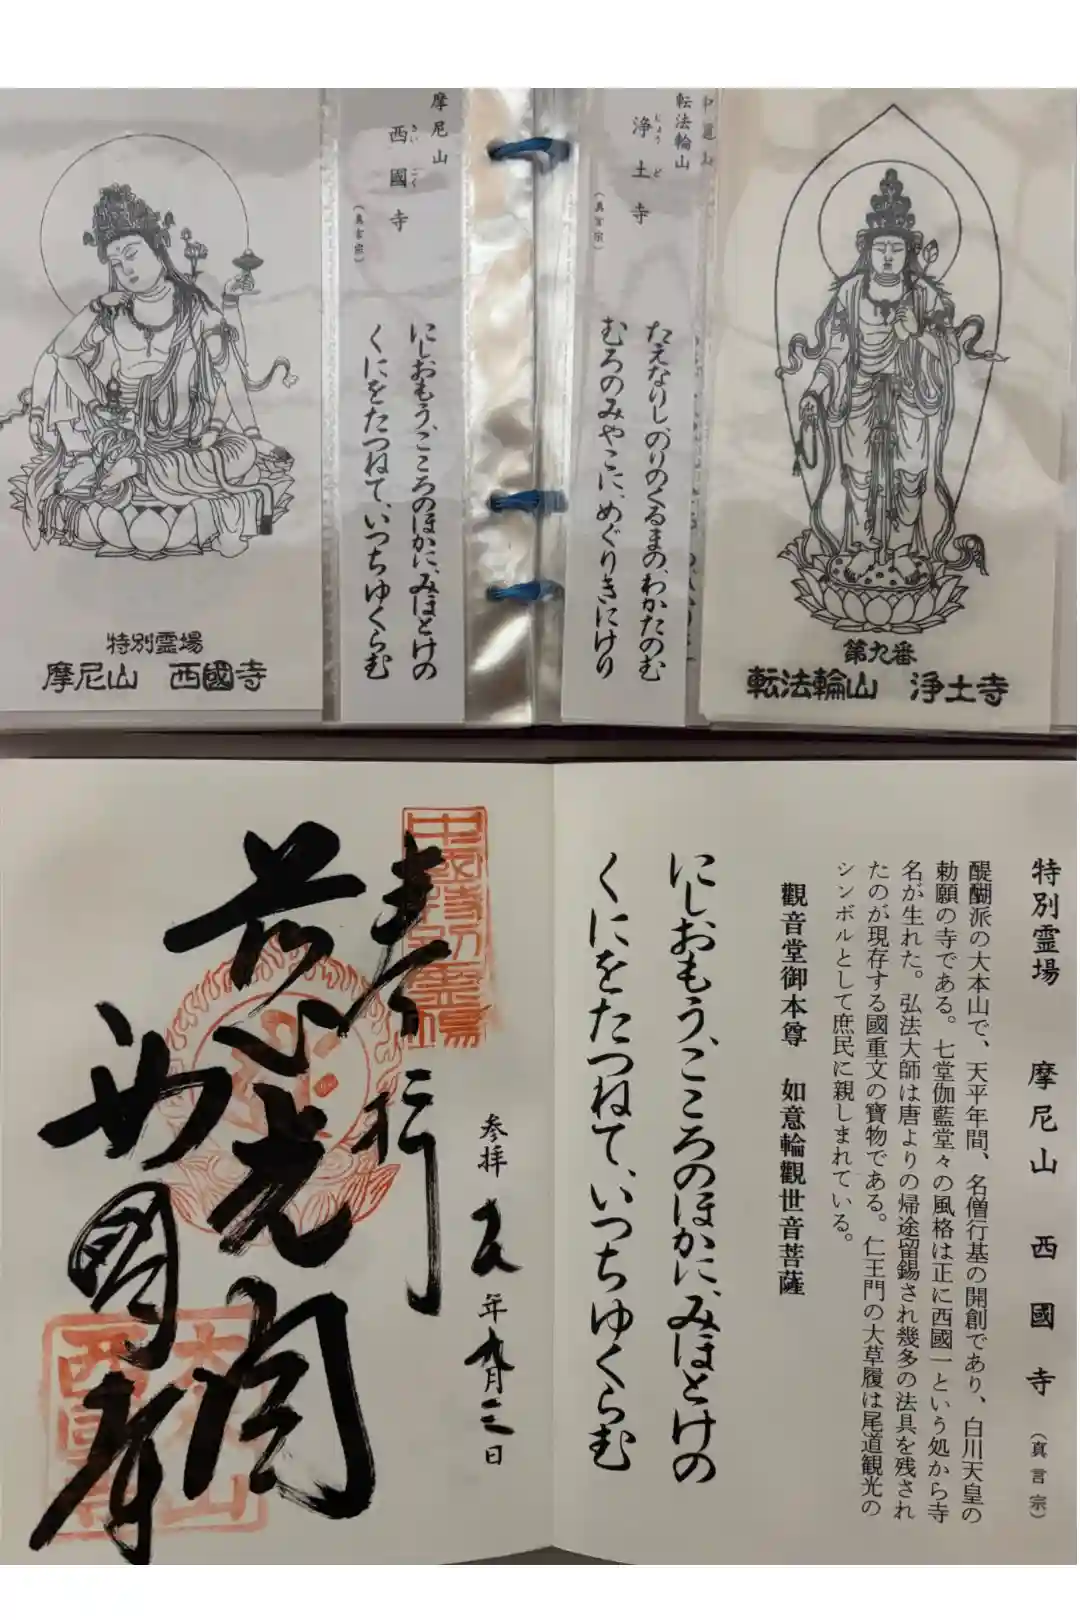 摩尼山
西國寺
さいこくじ
（真言宗）
にしおもう、こころのほかに、みほとけの
くにをたつねて、いつちゆくらむ
特別霊場
摩尼山 西國寺
転法輪山
浄土寺
じょうど
（真言宗）
たえなりし、のりのくるまの、わかたのむ
むろのみやこに、めぐりきにけり
第九番
転法輪山 浄土寺
特別霊場 摩尼山 西國寺（真言宗）
醍醐派の大本山で、天平年間、名僧行基の開創であり、白川天皇の
勅願の寺である。七堂伽藍堂々の風格は正に西國一という処から寺
名が生れた。弘法大師は唐よりの帰途留錫され幾多の法具を残され
たのが現存する國重文の寶物である。仁王門の大草履は尾道観光の
シンボルとして庶民に親しまれている。
觀音堂御本尊 如意輪觀世音菩薩
にしおもう、こころのほかに、みほとけの
くにをたつねて、いつちゆくらむ
参拝 年九月三日
中國特別霊場
奉拝
西國寺